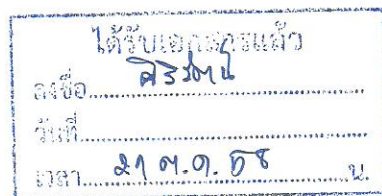 ได้รับเอกสารแล้ว
ลงชื่อ ศิริรัตน์
วันที่
เวลา ๒๑ ต.ค. ๖๕ น.